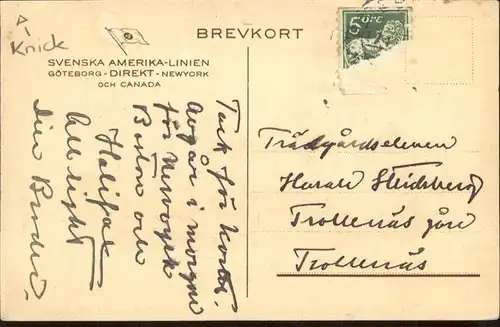 Knick
BREVKORT
5 ÖRE
SVENSKA AMERIKA-LINIEN
GÖTEBORG - DIREKT - NEWYORK
OCH CANADA
Tack för kortet.
Avgår i morgon
för Newyork
Boston och
Halifax
All right
Din Broder.
Trädgårdseleven
Harald
Trollenäs gård
Trollenäs